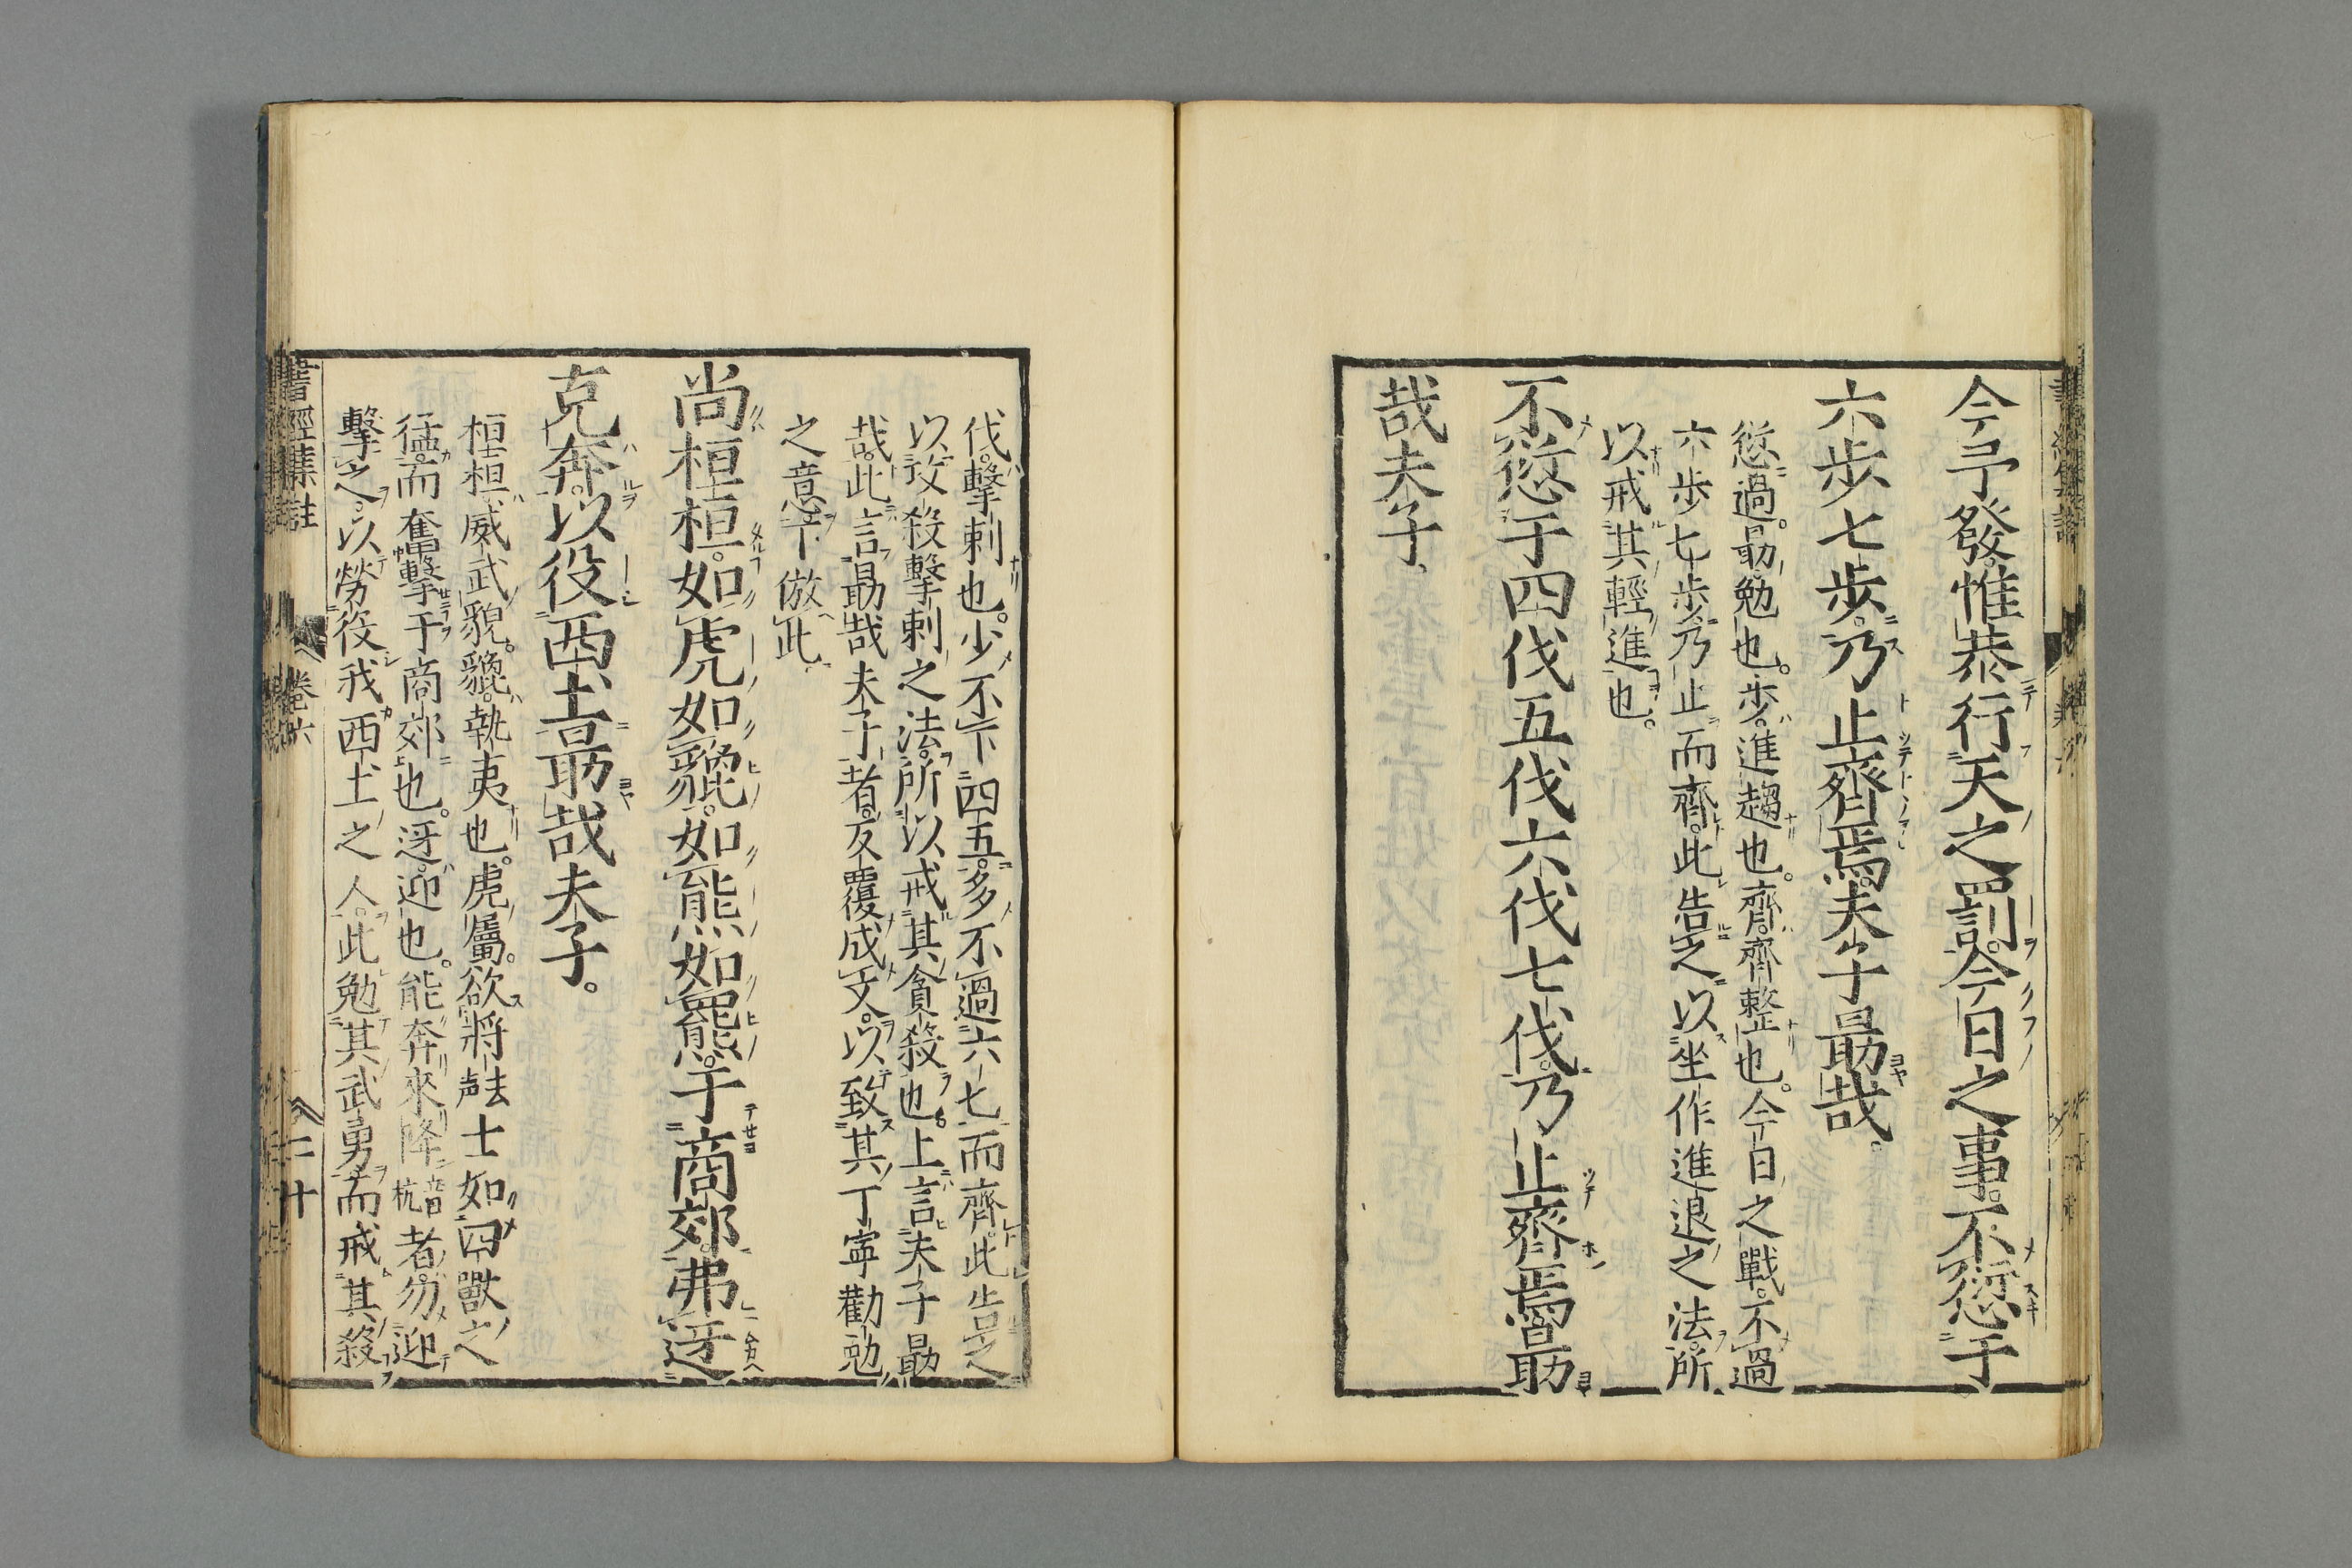 今予發惟恭行天之罰今日之事不愆于
六歩七歩乃止齊焉夫子勗哉
愆過勗勉也歩進趨也齊齊整也今日之戰不過
六歩七歩乃止而齊此告之以坐作進退之法所
以戒其輕進也
不愆于四伐五伐六伐七伐乃止齊焉勗
哉夫子
伐擊刺也少不下四五多不過六七而齊此告之
以攻殺擊刺之法所以戒其貪殺也上言夫子勗
哉此言勗哉夫子者反覆成文以致其丁寧勸勉
之意下倣此
尚桓桓如虎如貔如熊如羆于商郊弗迓
克奔以役西土勗哉夫子
桓桓威武貌貔執夷也虎屬欲將去声士如四獸之
猛而奮擊于商郊也迓迎也能奔來降音杭者勿迎
擊之以勞役我西土之人此勉其武勇而戒其殺
書經集註 卷六 二十